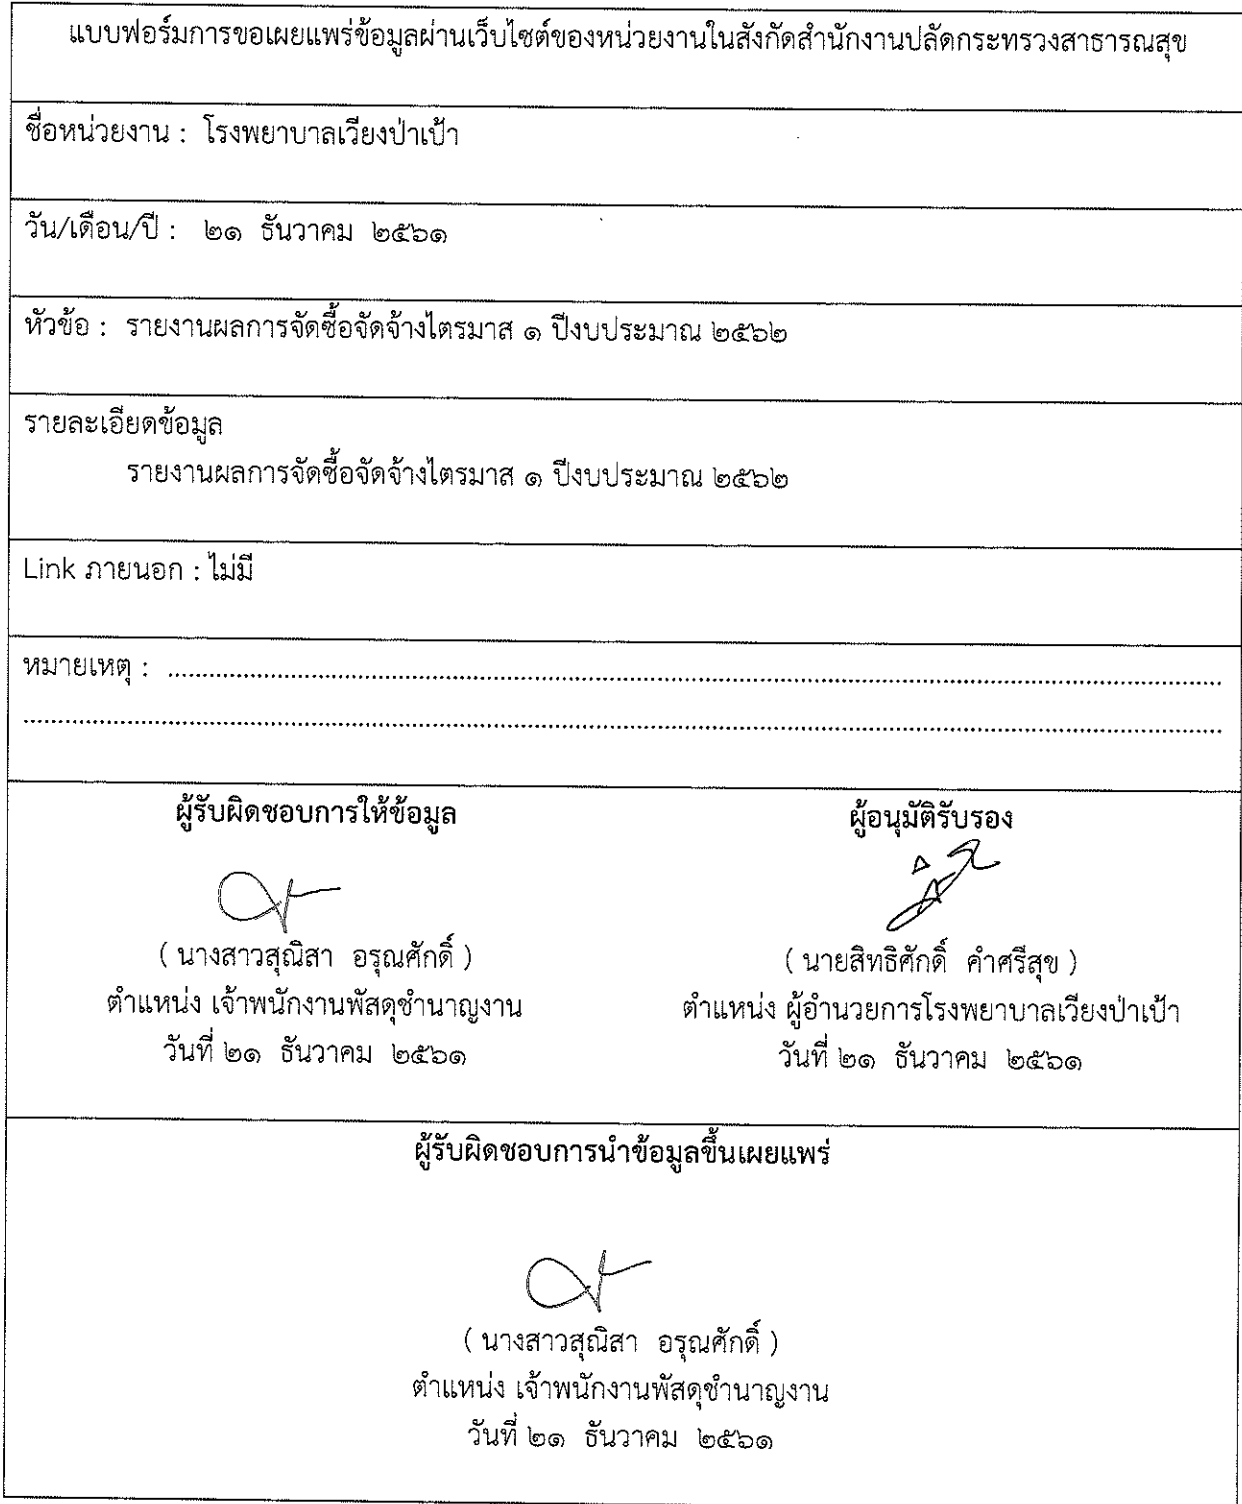 แบบฟอร์มการขอเผยแพร่ข้อมูลผ่านเว็บไซต์ของหน่วยงานในสังกัดสำนักงานปลัดกระทรวงสาธารณสุข
ชื่อหน่วยงาน : โรงพยาบาลเวียงป่าเป้า
วัน/เดือน/ปี : ๒๑ ธันวาคม ๒๕๖๑
หัวข้อ : รายงานผลการจัดซื้อจัดจ้างไตรมาส ๑ ปีงบประมาณ ๒๕๖๒
รายละเอียดข้อมูล
รายงานผลการจัดซื้อจัดจ้างไตรมาส ๑ ปีงบประมาณ ๒๕๖๒
Link ภายนอก : ไม่มี
หมายเหตุ : ........................................................................
........................................................................
ผู้รับผิดชอบการให้ข้อมูล
( นางสาวสุณิสา อรุณศักดิ์ )
ตำแหน่ง เจ้าพนักงานพัสดุชำนาญงาน
วันที่ ๒๑ ธันวาคม ๒๕๖๑
ผู้อนุมัติรับรอง
( นายสิทธิศักดิ์ คำศรีสุข )
ตำแหน่ง ผู้อำนวยการโรงพยาบาลเวียงป่าเป้า
วันที่ ๒๑ ธันวาคม ๒๕๖๑
ผู้รับผิดชอบการนำข้อมูลขึ้นเผยแพร่
( นางสาวสุณิสา อรุณศักดิ์ )
ตำแหน่ง เจ้าพนักงานพัสดุชำนาญงาน
วันที่ ๒๑ ธันวาคม ๒๕๖๑